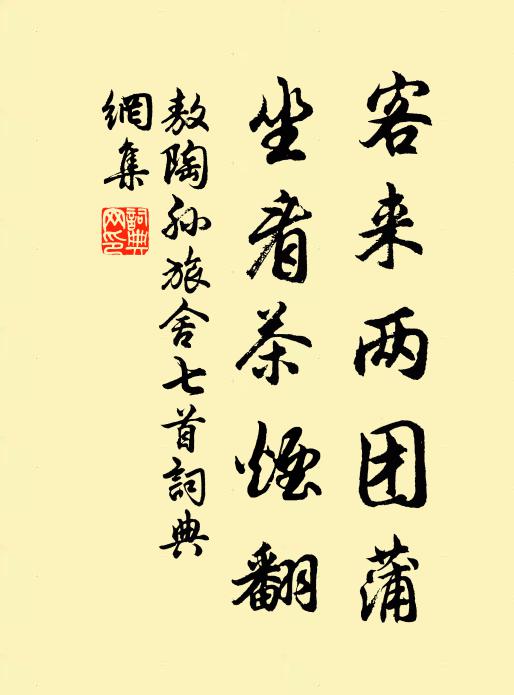 客来两团蒲
坐看茶烟翻
敖陶孙旅舍七首詞典
網集
詞典
网印